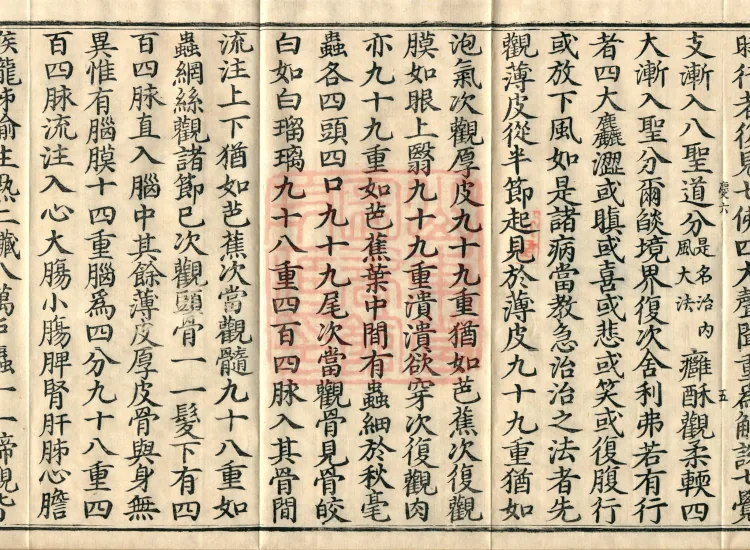 時行者復見七佛四大聲聞重爲解說七覺
慶六
五
支漸入八聖道分是名治內風大法癰酥觀柔輭四
大漸入聖分爾𦦨境界復次舍利弗若有行
者四大麤澀或瞋或喜或悲或笑或復腹行
或放下風如是諸病當教急治治之法者先
觀薄皮從半節起見於薄皮九十九重猶如
泡氣次觀厚皮九十九重猶如芭蕉次復觀
膜如眼上翳九十九重潰潰欲穿次復觀肉
亦九十九重如芭蕉葉中間有蟲細於秋毫
蟲各四頭四口九十九尾次當觀骨見骨皎
白如白瑠璃九十八重四百四脉入其骨間
流注上下猶如芭蕉次當觀髓九十八重如
蟲網絲觀諸節已次觀頭骨一一髮下有四
百四脉直入腦中其餘薄皮厚皮骨與身無
異惟有腦膜十四重腦爲四分九十八重四
百四脉流注入心大腸小腸脾腎肝肺心膽
喉嚨肺腧生熟二藏八萬戶蟲一一諦觀皆